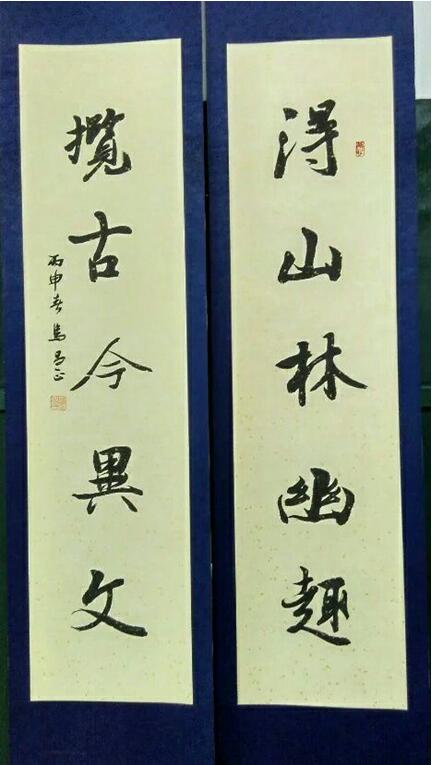 得山林幽趣
攬古今異文
丙申春馬